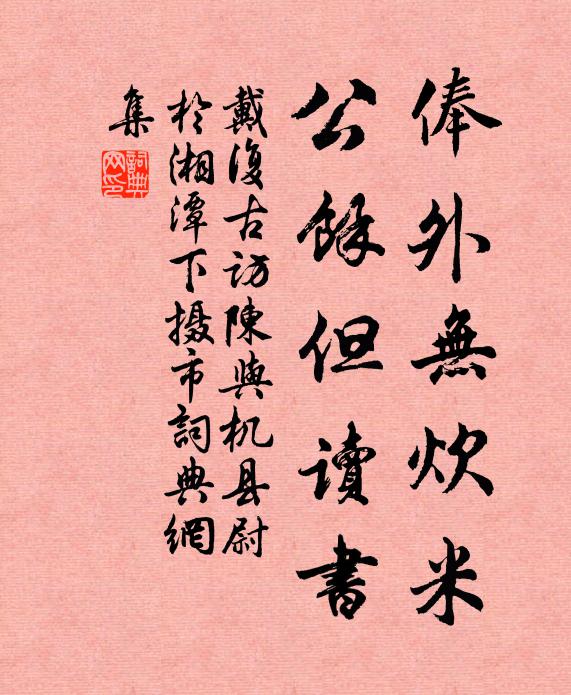 俸外無炊米
公餘但讀書
戴復古訪陳與机县尉
於湘潭下摄市詞典網
集
詞典
网印